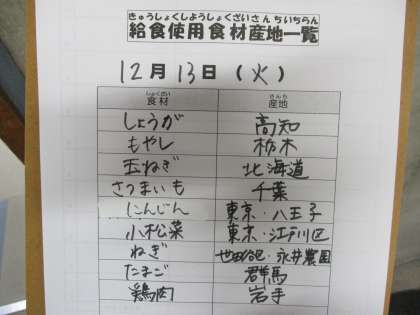 きゅうしょくしようしょくざいさんちいちらん
給食使用食材産地一覧
12月13日(火)
しょくざい さんち
食材 産地
しょうが 高知
もやし 栃木
玉ねぎ 北海道
さつまいも 千葉
にんじん 東京・八王子
小松菜 東京・江戸川区
ねぎ 世田谷・永井農園
たまご 群馬
鶏肉 岩手